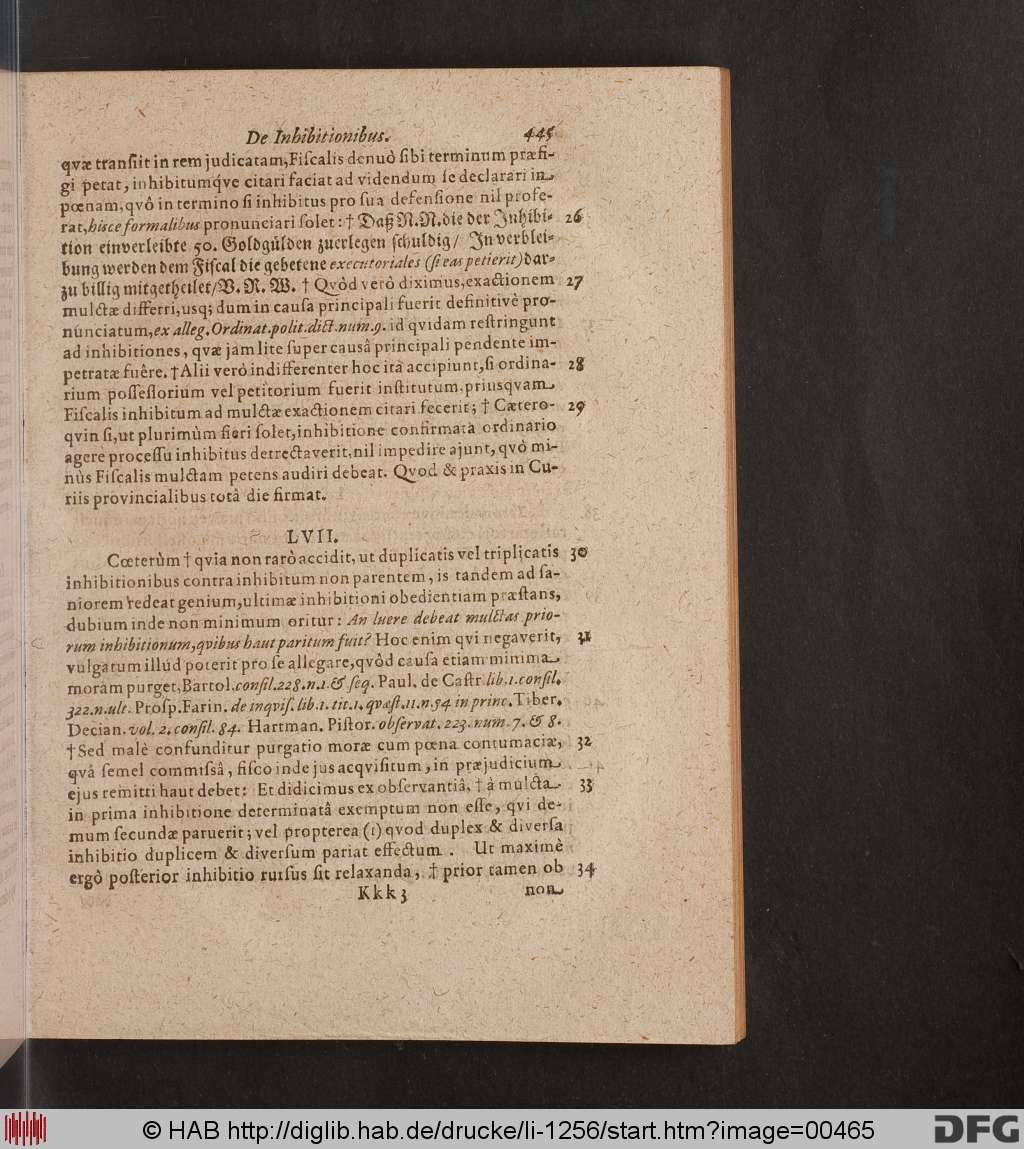 De Inhibitionibus. 445
qvæ transiit in rem judicatam, Fiscalis denuò sibi terminum præfi-
gi petat, inhibitumq́ve citari faciat ad videndum se declarari in
pœnam, qvô in termino si inhibitus pro sua defensione nil profe-
rat, hisce formalibus pronunciari solet: † Daß N. N. die der Inhibi- 26
tion einverleibte 50. Goldgülden zuerlegen schuldig / In verblei-
bung werden dem Fiscal die gebetene executoriales (si eas petierit) dar-
zu billig mitgetheilet / V. R. W. † Qvòd verò diximus, exactionem 27
mulctæ differri, usq; dum in causa principali fuerit definitivè pro-
nunciatum, ex alleg. Ordinat. polit. dict. num. 9. id qvidam restringunt
ad inhibitiones, qvæ jam lite super causâ principali pendente im-
petratæ fuêre. † Alii verò indifferenter hoc ita accipiunt, si ordina- 28
rium possessorium vel petitorium fuerit institutum, priusqvam
Fiscalis inhibitum ad mulctæ exactionem citari fecerit; † Cætero- 29
qvin si, ut plurimùm fieri solet, inhibitione confirmatâ ordinario
agere processu inhibitus detrectaverit, nil impedire ajunt, qvò mi-
nùs Fiscalis mulctam petens audiri debeat. Qvod & praxis in Cu-
riis provincialibus totâ die firmat.
LVII.
Cœterùm † qvia non rarò accidit, ut duplicatis vel triplicatis 30
inhibitionibus contra inhibitum non parentem, is tandem ad sa-
niorem redeat genium, ultimæ inhibitioni obedientiam præstans,
dubium inde non minimum oritur: An luere debeat mulctas prio-
rum inhibitionum, qvibus haut paritum fuit? Hoc enim qvi negaverit, 31
vulgatum illud poterit pro se allegare, qvòd causa etiam minima
moram purget, Bartol. consil. 228. n. 1. & seq. Paul. de Castr. lib. 1. consil.
322. n. ult. Prosp. Farin. de inqvis. lib. 1. tit. 1. qvæst. 11. n. 54 in princ. Tiber.
Decian. vol. 2. consil. 84. Hartman. Pistor. observat. 223. num. 7. & 8.
† Sed malè confunditur purgatio moræ cum pœna contumaciæ, 32
qvâ semel commissâ, fisco inde jus acqvisitum, in præjudicium
ejus remitti haut debet: Et didicimus ex observantiâ, † à mulcta 33
in prima inhibitione determinatâ exemptum non esse, qvi de-
mum secundæ paruerit; vel propterea (1) qvod duplex & diversa
inhibitio duplicem & diversum pariat effectum. Ut maximè
ergò posterior inhibitio rursus sit relaxanda, † prior tamen ob 34
Kkk 3 non
© HAB http://diglib.hab.de/drucke/li-1256/start.htm?image=00465 DFG